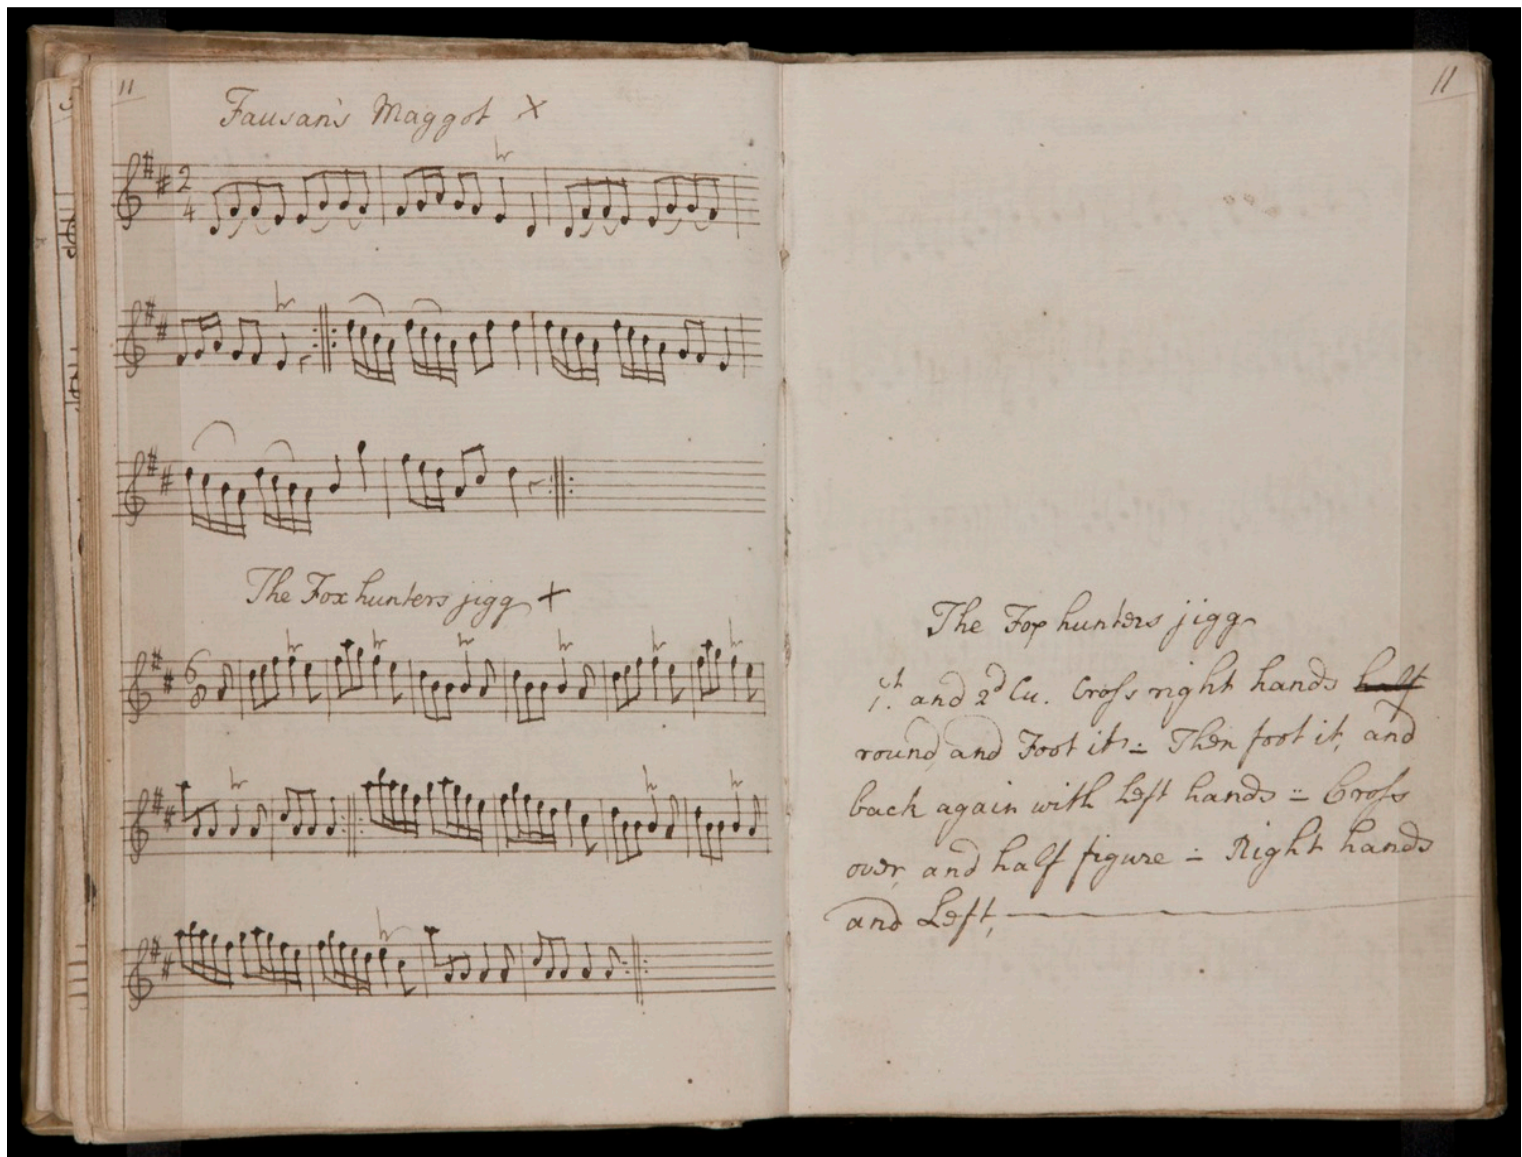 11
Fausan's Maggot X
2
4
The Fox hunters jigg +
6
8
11
The Fox hunters jigg
1st. and 2d Cu. Cross right hands half
round, and Foot it :- Then foot it, and
back again with Left hands :- Cross
over, and half figure :- Right hands
and Left,